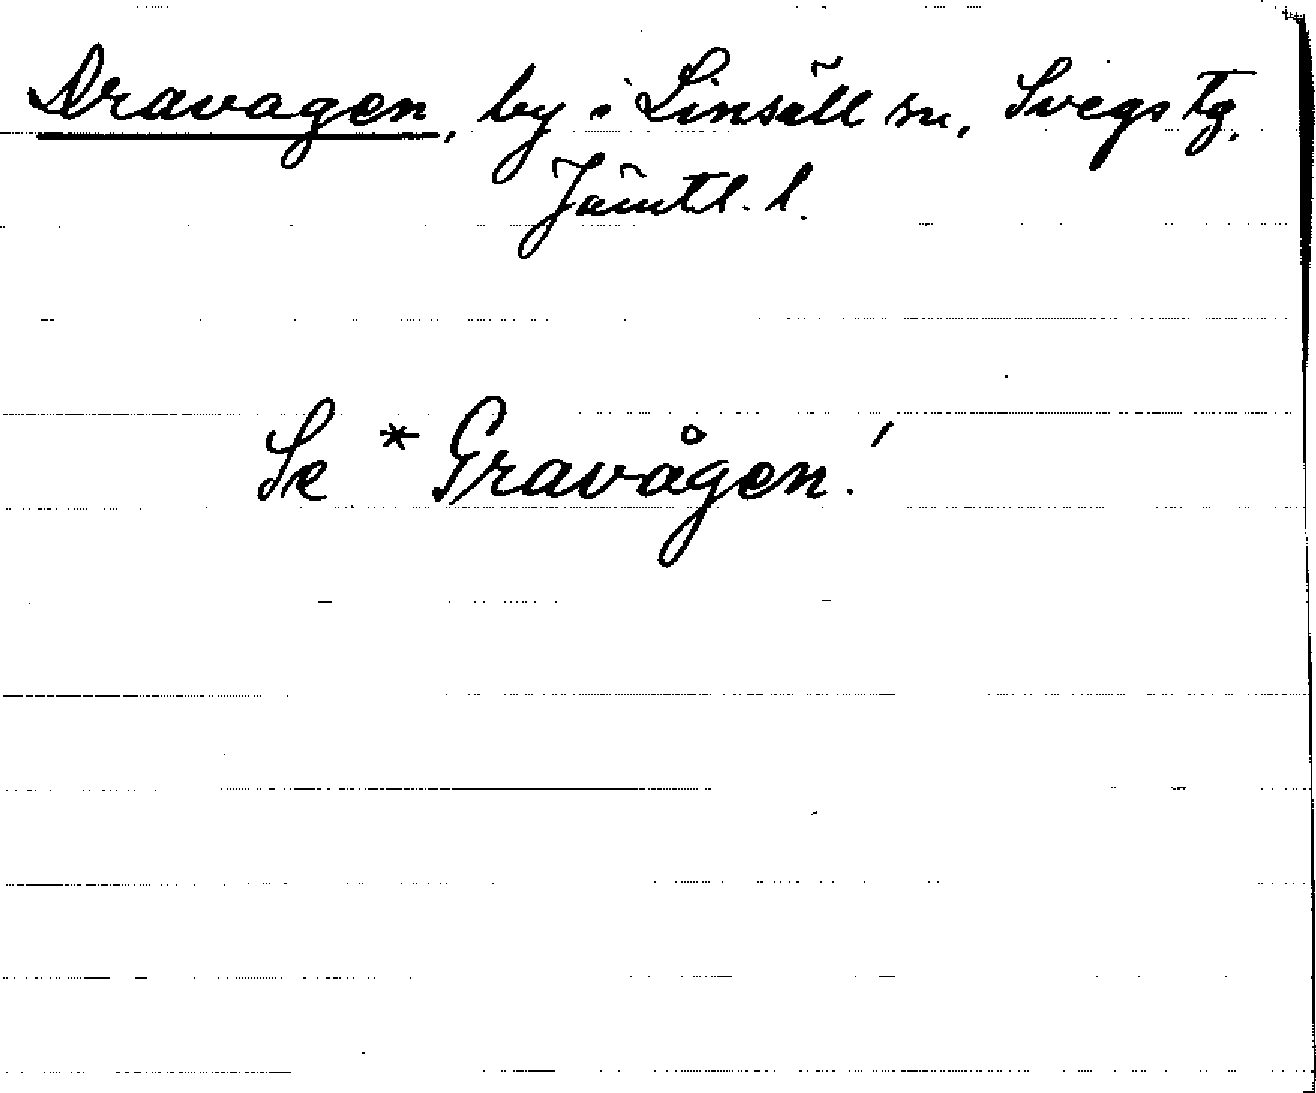 Dravagen, by i Linsäll sn, Svegs tg,
Jämtl. l.
Se *Gravågen!